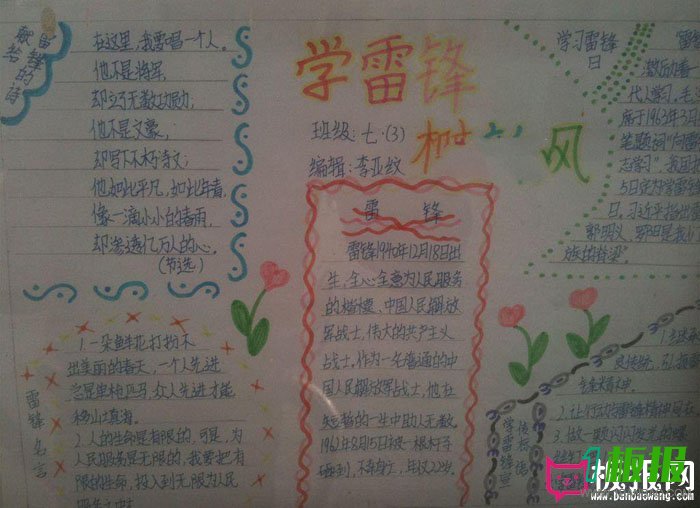 献给
雷锋的诗
在这里,我要唱一个人。
他不是将军,
却立了无数功勋;
他不是文豪,
却写下不朽诗文;
他如此平凡,如此年青,
像一滴小小的春雨,
却渗透亿万人的心。
(节选)
学雷锋
树 风
班级:七·(3)
编辑:李亚纹
雷 锋
雷锋1940年12月18日出
生,全心全意为人民服务
的楷模,中国人民解放
军战士,伟大的共产主义
战士,作为一名普通的中
国人民解放军战士,他在
短暂的一生中助人无数。
1962年8月15日被一根杆子
砸到,不幸身亡,年仅22岁。
学习雷锋
日
代人学习。毛
席于1963年3月
笔题词“向雷
志学习”,我国
5日定为学雷
日,习近平指出
郭明义,罗阳是我
族的脊梁
雷锋名言
1.一朵鲜花打扮不
出美丽的春天,一个人先进
总是单枪匹马,众人先进才能
移山填海。
2.人的生命是有限的,可是,为
人民服务是无限的,我要把有
限的生命,投入到无限为人民
服务之中去
学雷锋宣
传标语
良传统,弘
2.让
3.做一颗闪闪发光的螺
板报网
www.banbaowang.com